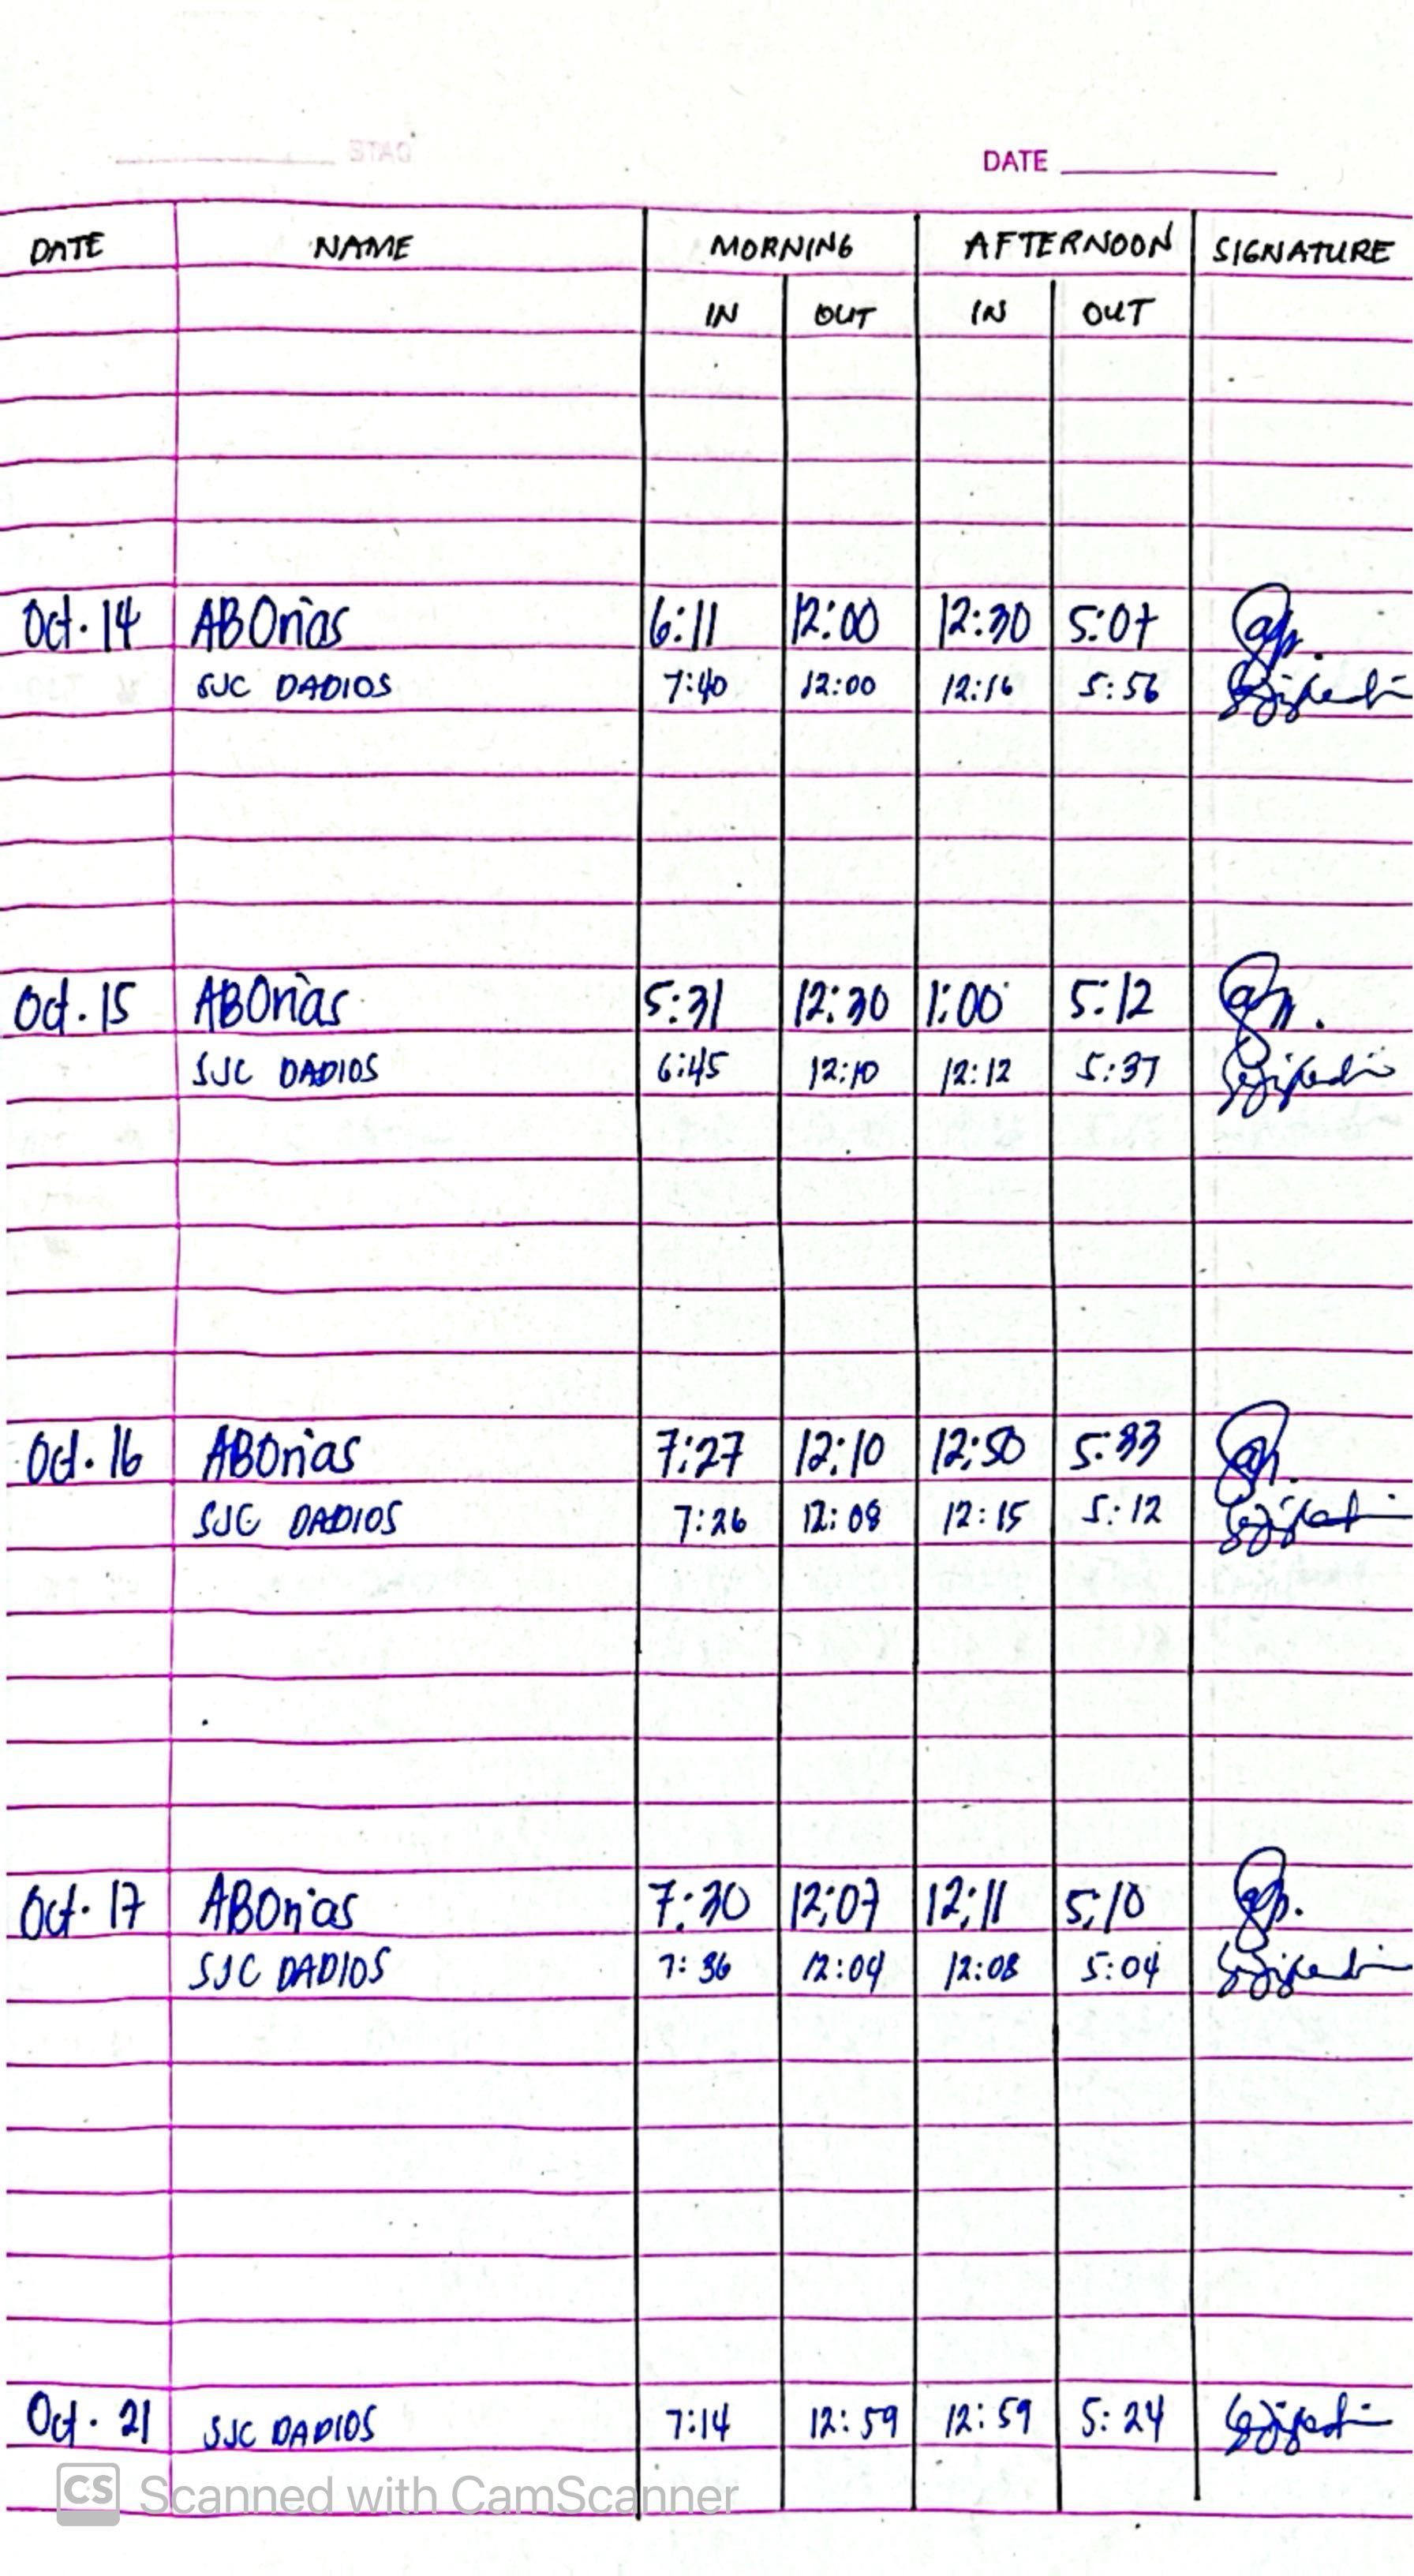 DATE
DATE NAME MORNING AFTERNOON SIGNATURE
IN OUT IN OUT
Oct. 14 ABOrias 6:11 12:00 12:30 5:07
SJC DADIOS 7:40 12:00 12:16 5:56
Oct. 15 ABOrias 5:31 12:30 1:00 5:12
SJC DADIOS 6:45 12:10 12:12 5:37
Oct. 16 ABOrias 7:27 12:10 12:50 5:33
SJC DADIOS 7:26 12:08 12:15 5:12
Oct. 17 ABOrias 7:30 12:07 12:11 5:10
SJC DADIOS 7:36 12:04 12:08 5:04
Oct. 21 SJC DADIOS 7:14 12:59 12:59 5:24
CS Scanned with CamScanner